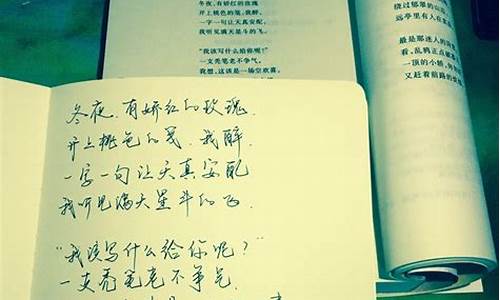 冬夜,有娇红的玫瑰
开上桃色的笺,我醉,
一字一句让天真安配,
我听见满天星斗的飞。
"我该写什么给你呢?"
一支秃笔老不争气,
我想,这该是一场空欢喜,
绕过郁翠的山
远亭里有人在
最是那迷人的
看,乱鸦正点
一顶的小轿,
又赶着前路的
冬夜,有娇红的玫瑰.
开上桃色的笺,我醉
一字一句让天真安配
我听见满天星斗的飞.
"我该写什么给你呢?"
一支秃笔老不争气.